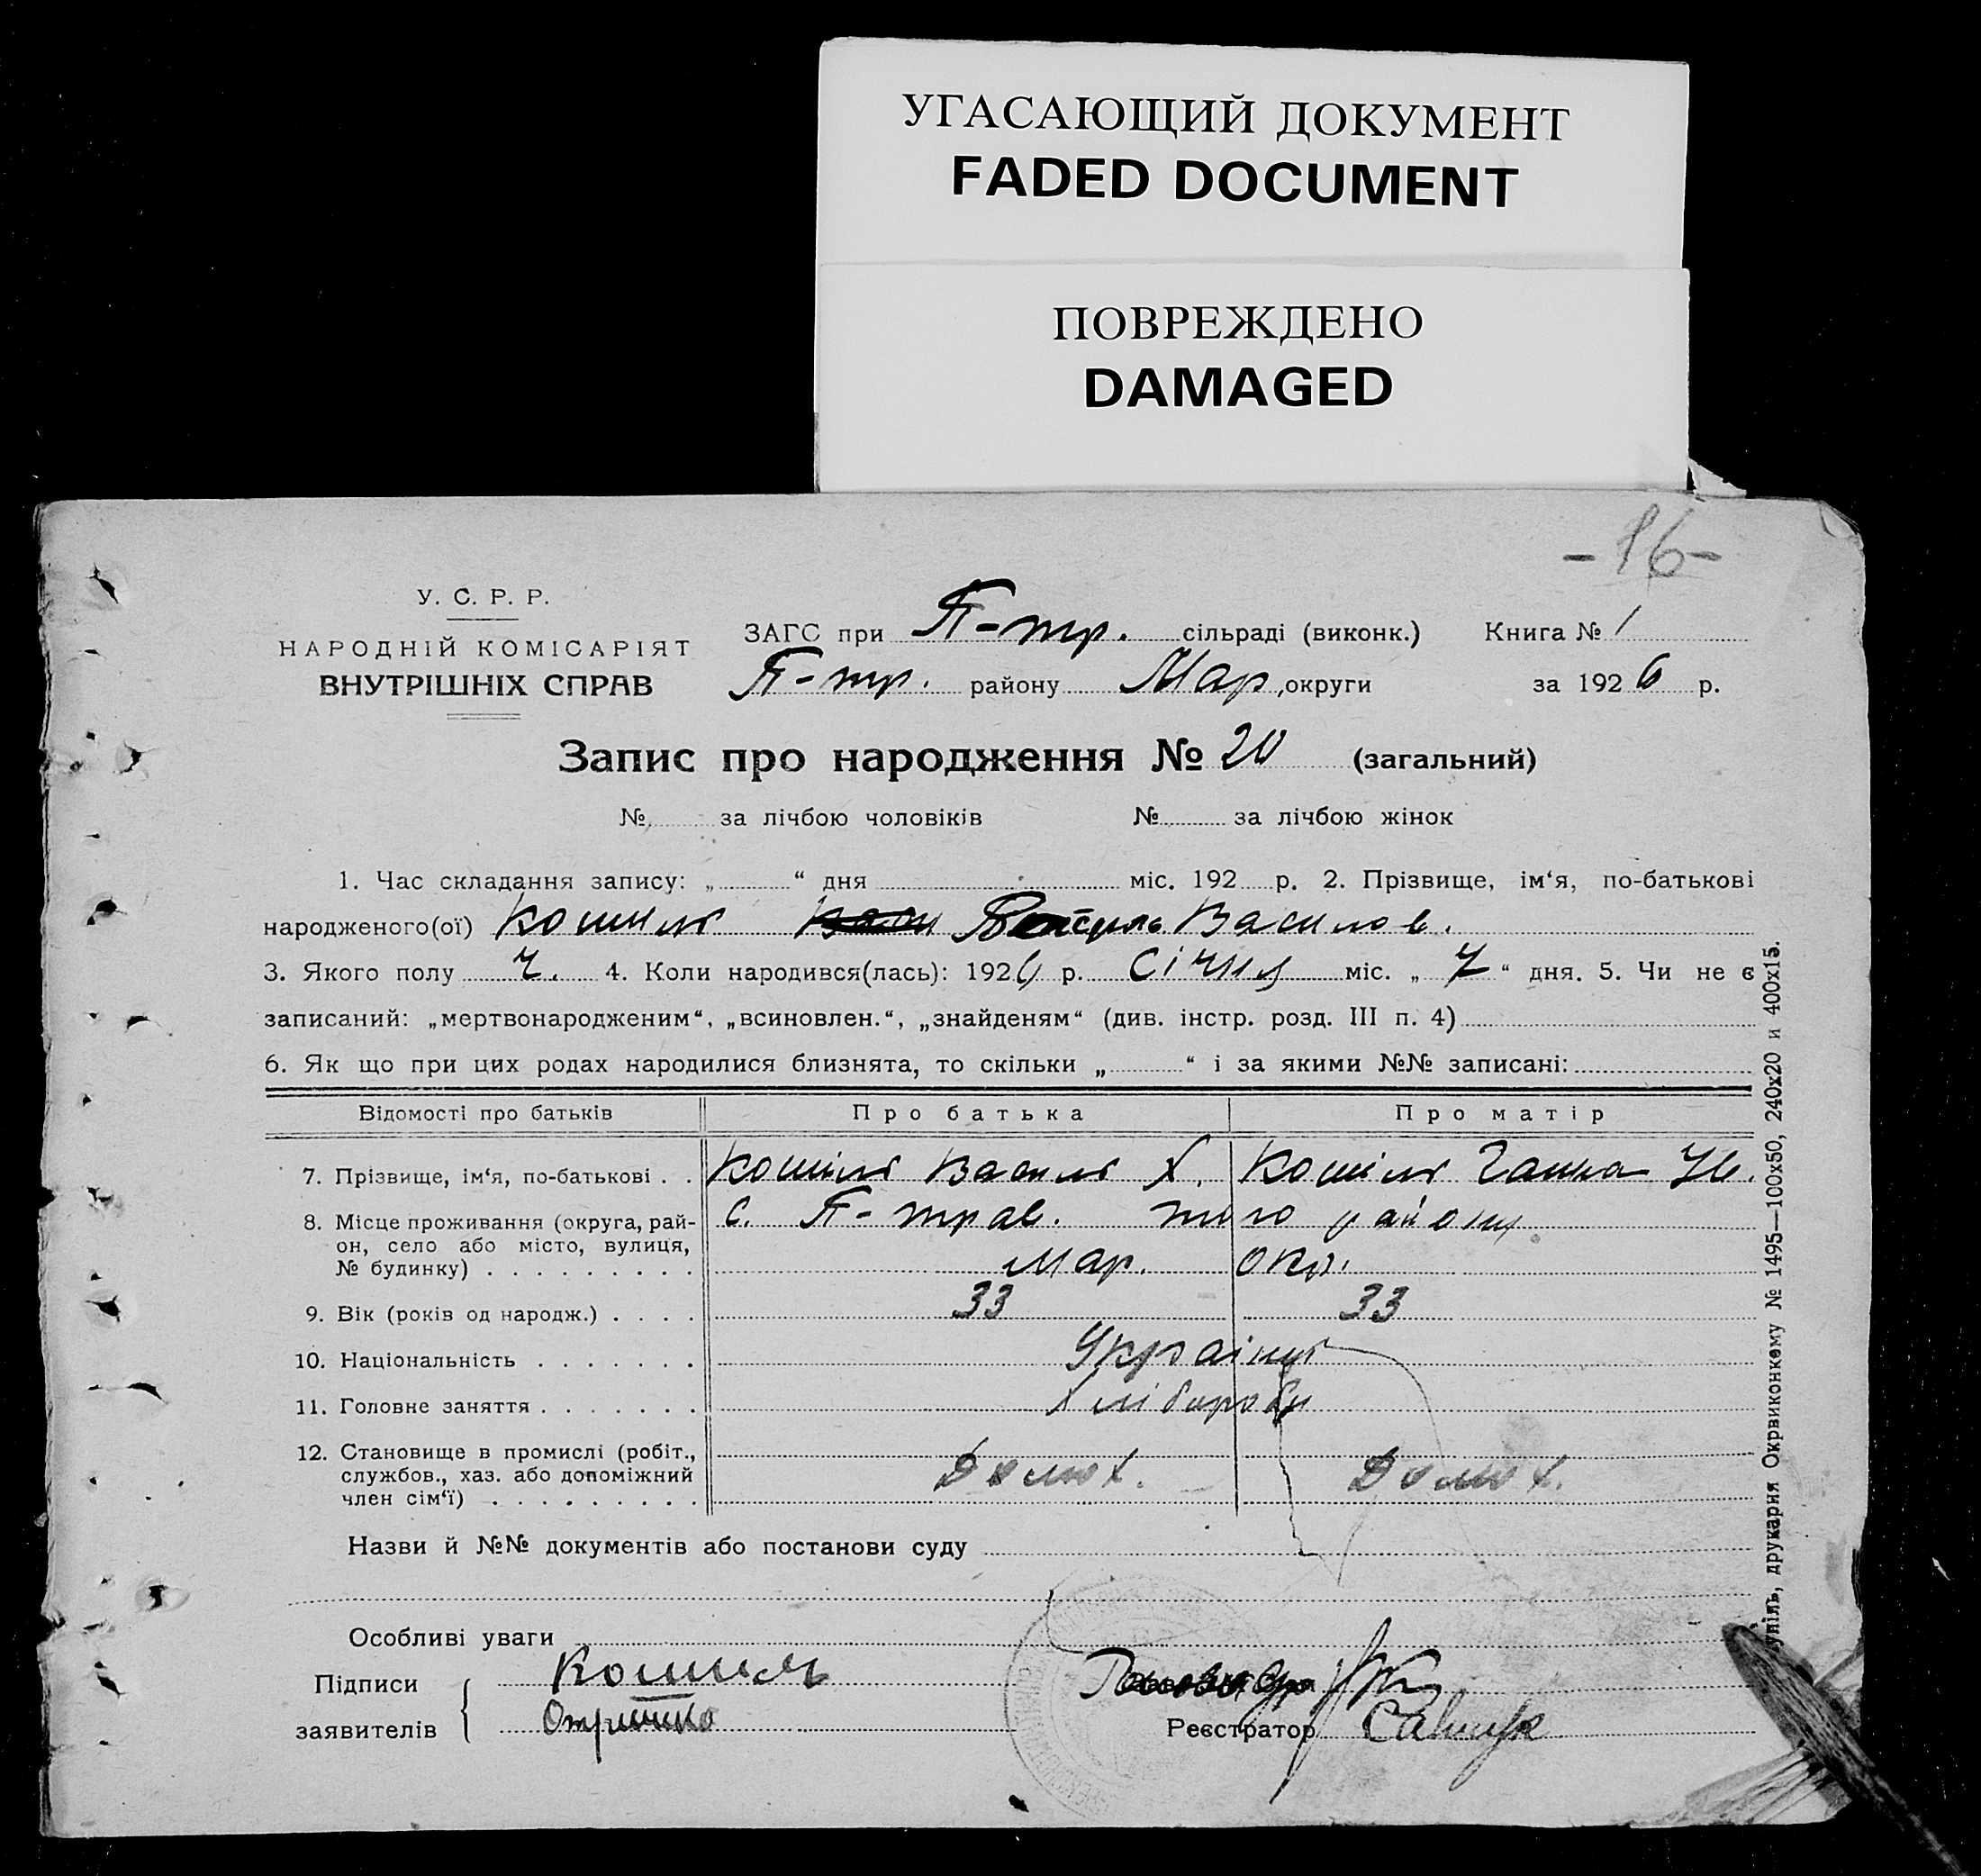 УГАСАЮЩИЙ ДОКУМЕНТ
FADED DOCUMENT
ПОВРЕЖДЕНО
DAMAGED
-16-
У. С. Р. Р.
НАРОДНІЙ КОМІСАРІЯТ
ВНУТРІШНІХ СПРАВ
ЗАГС при П-тр. сільраді (виконк.) Книга № 1
П-тр. району Мар. округи за 1926 р.
Запис про народження № 20 (загальний)
№ за лічбою чоловіків № за лічбою жінок
1. Час складання запису: „ “ дня міс. 192 р. 2. Прізвище, ім‘я, по-батькові
народженого(ої) Кошиль Василь Василов.
3. Якого полу ч. 4. Коли народився(лась): 1926 р. Січня міс. „7“ дня. 5. Чи не є
записаний: „мертвонародженим“, „всиновлен.“, „знайденям“ (див. інстр. розд. III п. 4)
6. Як що при цих родах народилися близнята, то скільки „ “ і за якими №№ записані:
Відомості про батьків Про батька Про матір
7. Прізвище, ім‘я, по-батькові . . Кошіль Василь Х. Кошіль Ганна Ів.
8. Місце проживання (округа, рай-
он, село або місто, вулиця,
№ будинку) . . . . . . . . .
с. П-трав. того району
Мар. окр.
9. Вік (років од народж.) . . . . 33 33
10. Національність . . . . . . . Українці
11. Головне заняття . . . . . . . Хлібороби
12. Становище в промислі (робіт.,
службов., хаз. або допоміжний
член сім‘ї) . . . . . . . . .
Назви й №№ документів або постанови суду
Особливі уваги
Підписи
заявителів
Кошиль
Отришко
Реєстратор Савчук
уніль, друкарня Окрвиконкому № 1495—100х50, 240х20 и 400х15.